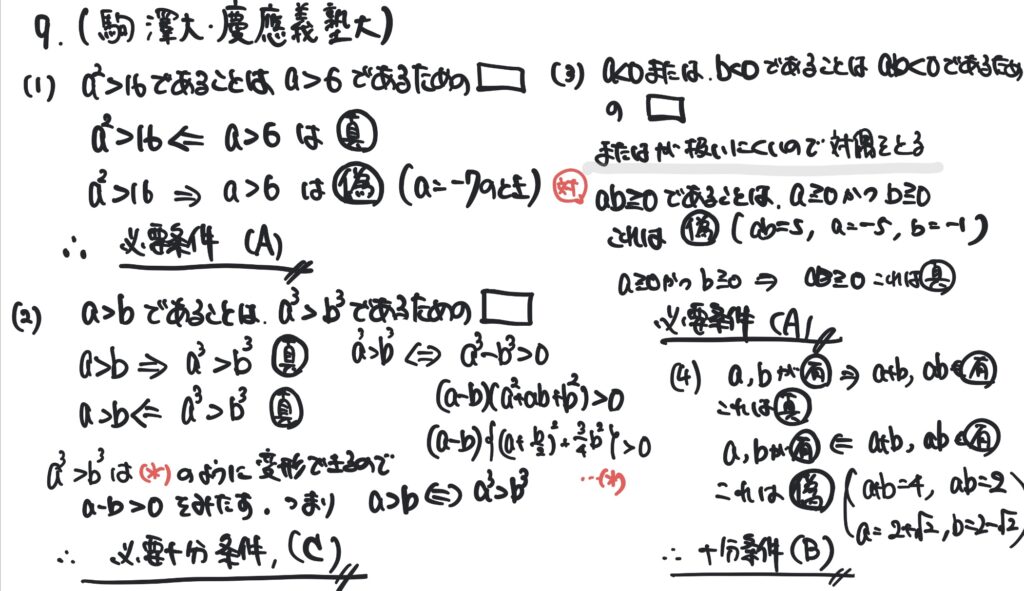 9. (駒澤大・慶應義塾大)
(1) a²>16であることは a>6であるための□
a²>16 ⇐ a>6 は 真
a²>16 ⇒ a>6 は 偽 (a=-7のとき)
∴ 必要条件 (A)
(2) a>b であることは a³>b³であるための□
a>b ⇒ a³>b³ 真
a>b ⇐ a³>b³ 真
a³>b³ ⇔ a³-b³>0
(a-b)(a²+ab+b²)>0
(a-b){(a+b/2)²+3/4b²}>0
…(*)
a³>b³は(*)のように変形できるので
a-b>0 をみたす。つまり a>b ⇔ a³>b³
∴ 必要十分条件, (C)
(3) a<0または、b<0であることは ab<0であるため
の □
またはが扱いにくいので対偶をとる
対 ab≧0であることは、a≧0かつb≧0
これは 偽 (ab=5, a=-5, b=-1)
a≧0かつb≧0 ⇒ ab≧0 これは真
必要条件 (A)
(4) a,bが有 ⇒ a+b, abも有
これは真
a,bが有 ⇐ a+b, abも有
これは 偽 (a+b=4, ab=2
a=2+√2, b=2-√2)
∴ 十分条件 (B)